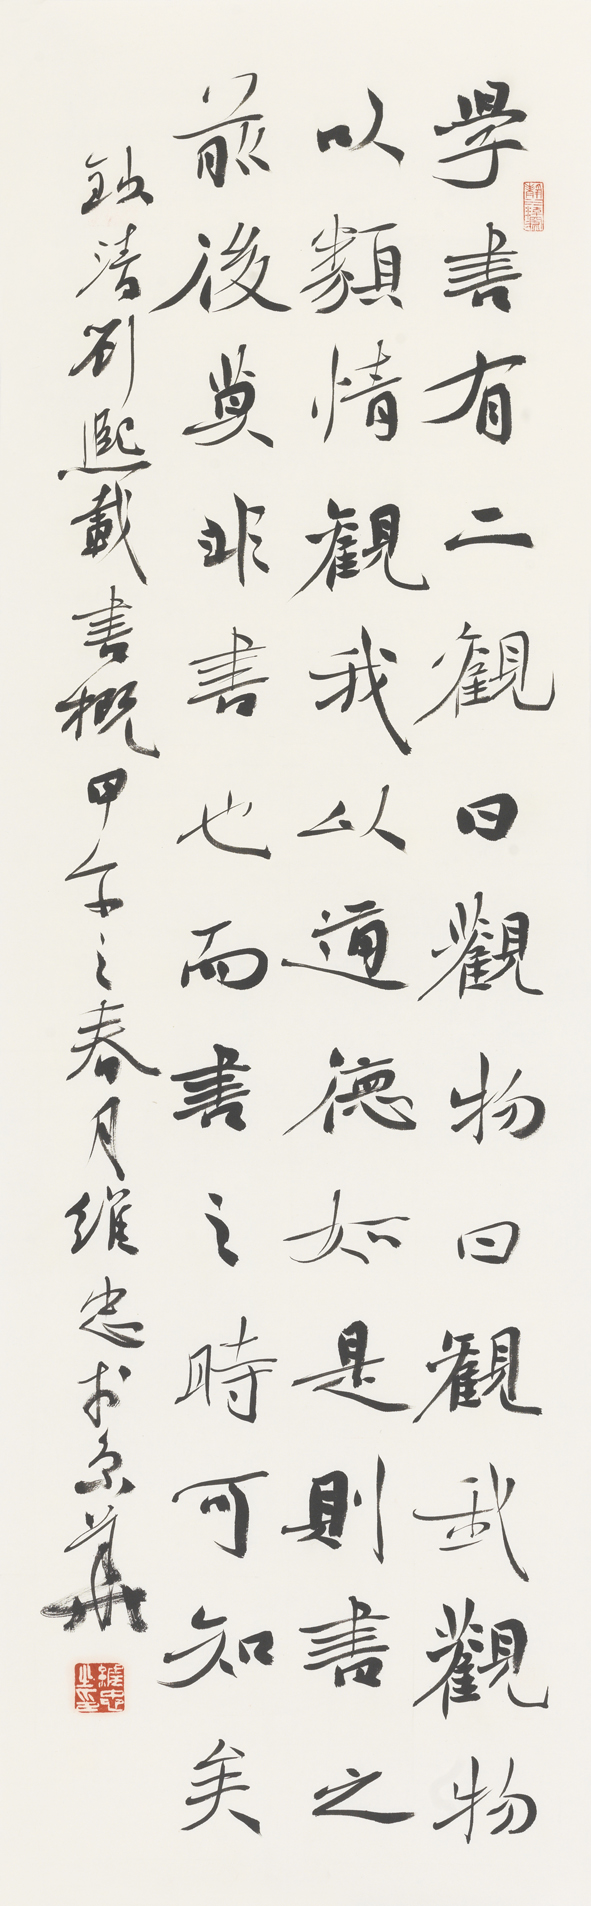 學書有二觀曰觀物曰觀我觀物
以類情觀我以通德如是則書之
前後莫非書也而書之時可知矣
錄清劉熙載書概甲午之春月維忠於京華